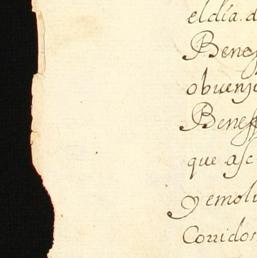 el día. d
Benef
obuenjo
Benef
que asc
y emolu
Corridos